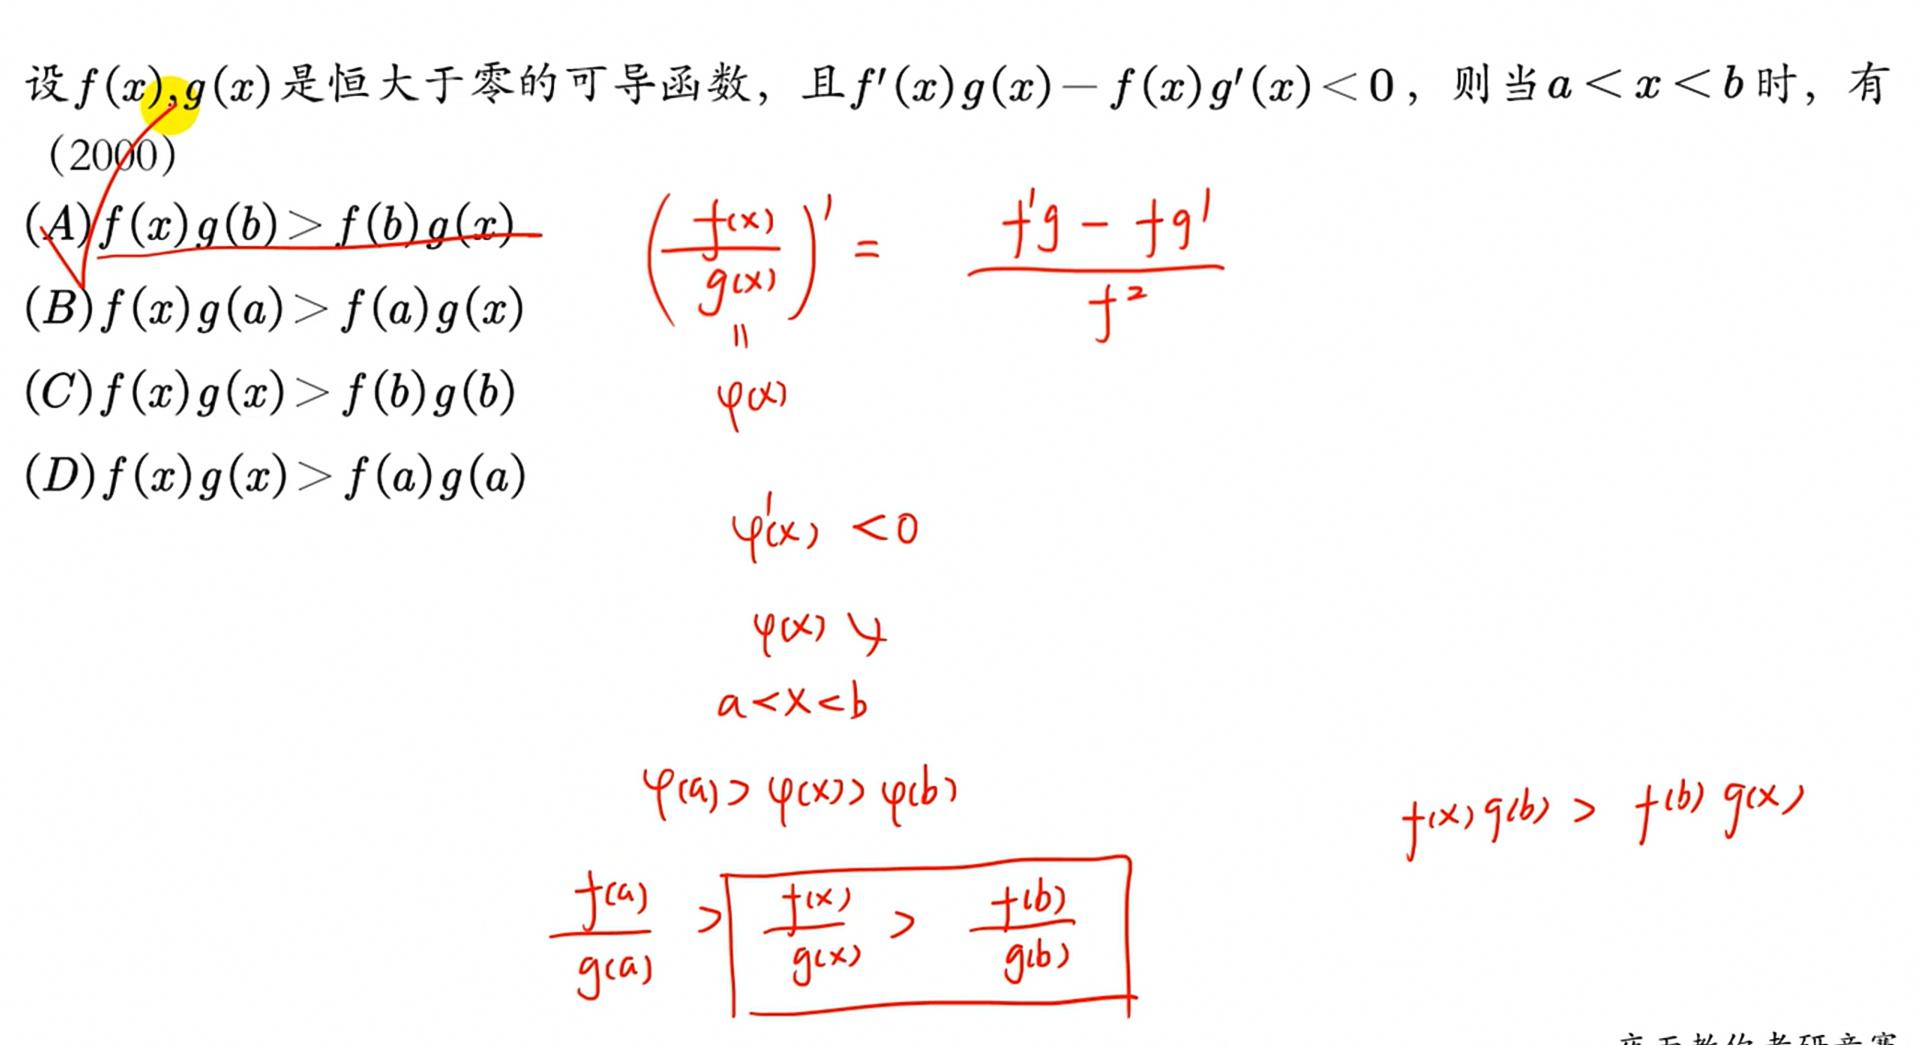 设f(x),g(x)是恒大于零的可导函数，且f′(x)g(x)－f(x)g′(x)＜0，则当a＜x＜b时，有
(2000)
(A)f(x)g(b)＞f(b)g(x)
(B)f(x)g(a)＞f(a)g(x)
(C)f(x)g(x)＞f(b)g(b)
(D)f(x)g(x)＞f(a)g(a)
(f(x)/g(x))′ = (f′g − fg′)/f²
=
φ(x)
φ′(x) <0
φ(x) ↘
a<x<b
φ(a)> φ(x)> φ(b)
f(x)g(b) > f(b) g(x)
f(a)/g(a) > f(x)/g(x) > f(b)/g(b)